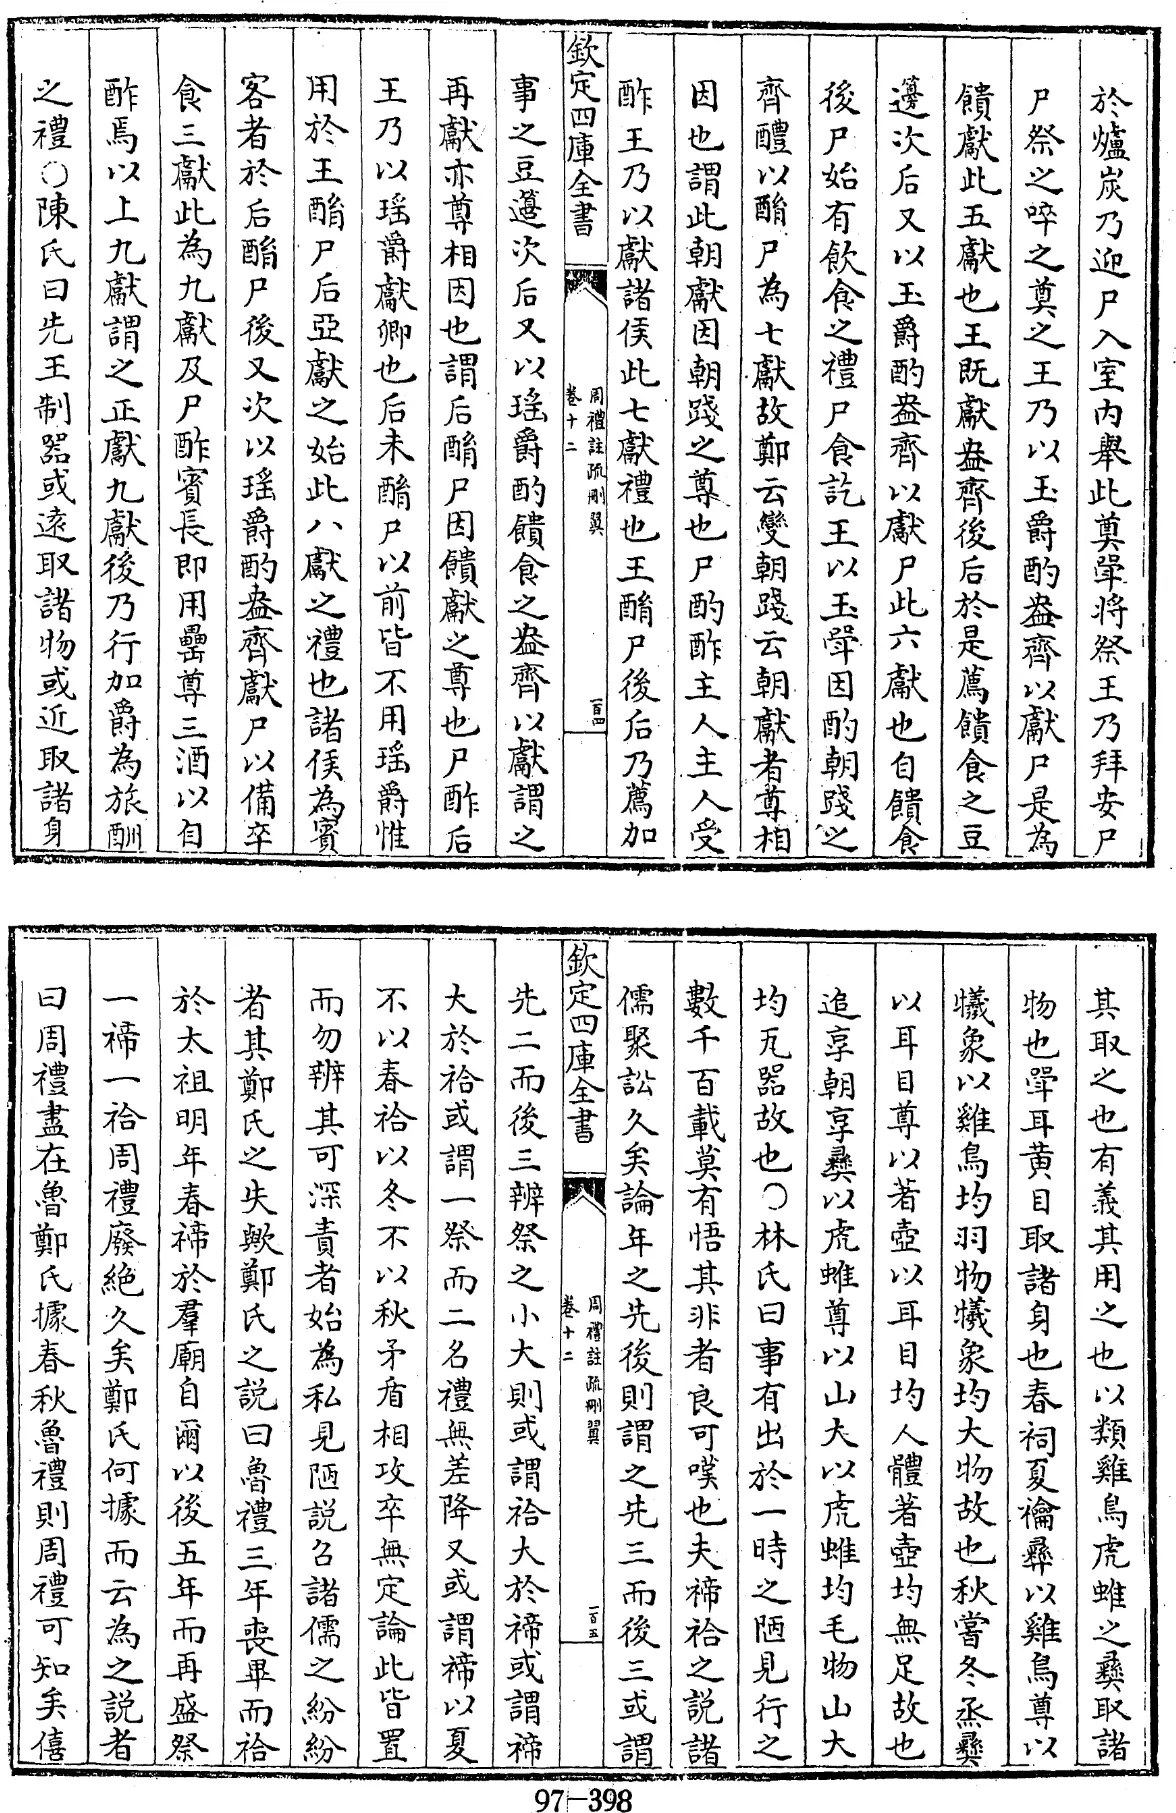 於爐炭乃迎尸入室内舉此奠斝將祭王乃拜安尸
尸祭之啐之奠之王乃以玉爵酌盎齊以獻尸是為
饋獻此五獻也王既獻盎齊後后於是薦饋食之豆
籩次后又以玉爵酌盎齊以獻尸此六獻也自饋食
後尸始有飲食之禮尸食訖王以玉斝因酌朝踐之
齊醴以酳尸為七獻故鄭云變朝踐云朝獻者尊相
因也謂此朝獻因朝踐之尊也尸酌酢主人主人受
酢王乃以獻諸侯此七獻禮也王酳尸後后乃薦加
欽定四庫全書
周禮註疏刪翼
卷十二
一百四
事之豆籩次后又以瑶爵酌饋食之盎齊以獻謂之
再獻亦尊相因也謂后酳尸因饋獻之尊也尸酢后
王乃以瑶爵獻卿也后未酳尸以前皆不用瑶爵惟
用於王酳尸后亞獻之始此八獻之禮也諸侯為賓
客者於后酳尸後又次以瑶爵酌盎齊獻尸以備卒
食三獻此為九獻及尸酢賓長即用罍尊三酒以自
酢焉以上九獻謂之正獻九獻後乃行加爵為旅酬
之禮○陳氏曰先王制器或遠取諸物或近取諸身
其取之也有義其用之也以類雞鳥虎蜼之彞取諸
物也斝耳黄目取諸身也春祠夏禴彞以雞鳥尊以
犧象以雞鳥均羽物犧象均大物故也秋嘗冬烝彞
以耳目尊以著壺以耳目均人體著壺均無足故也
追享朝享彞以虎蜼尊以山大以虎蜼均毛物山大
均瓦器故也○林氏曰事有出於一時之陋見行之
數千百載莫有悟其非者良可嘆也夫禘祫之説諸
儒聚訟久矣論年之先後則謂之先三而後三或謂
欽定四庫全書
周禮註疏刪翼
卷十二
一百五
先二而後三辨祭之小大則或謂祫大於禘或謂禘
大於祫或謂一祭而二名禮無差降又或謂禘以夏
不以春祫以冬不以秋矛盾相攻卒無定論此皆置
而勿辨其可深責者始為私見陋説召諸儒之紛紛
者其鄭氏之失歟鄭氏之説曰魯禮三年喪畢而祫
於太祖明年春禘於羣廟自爾以後五年而再盛祭
一禘一祫周禮廢絶久矣鄭氏何據而云為之説者
曰周禮盡在魯鄭氏據春秋魯禮則周禮可知矣僖
97-398